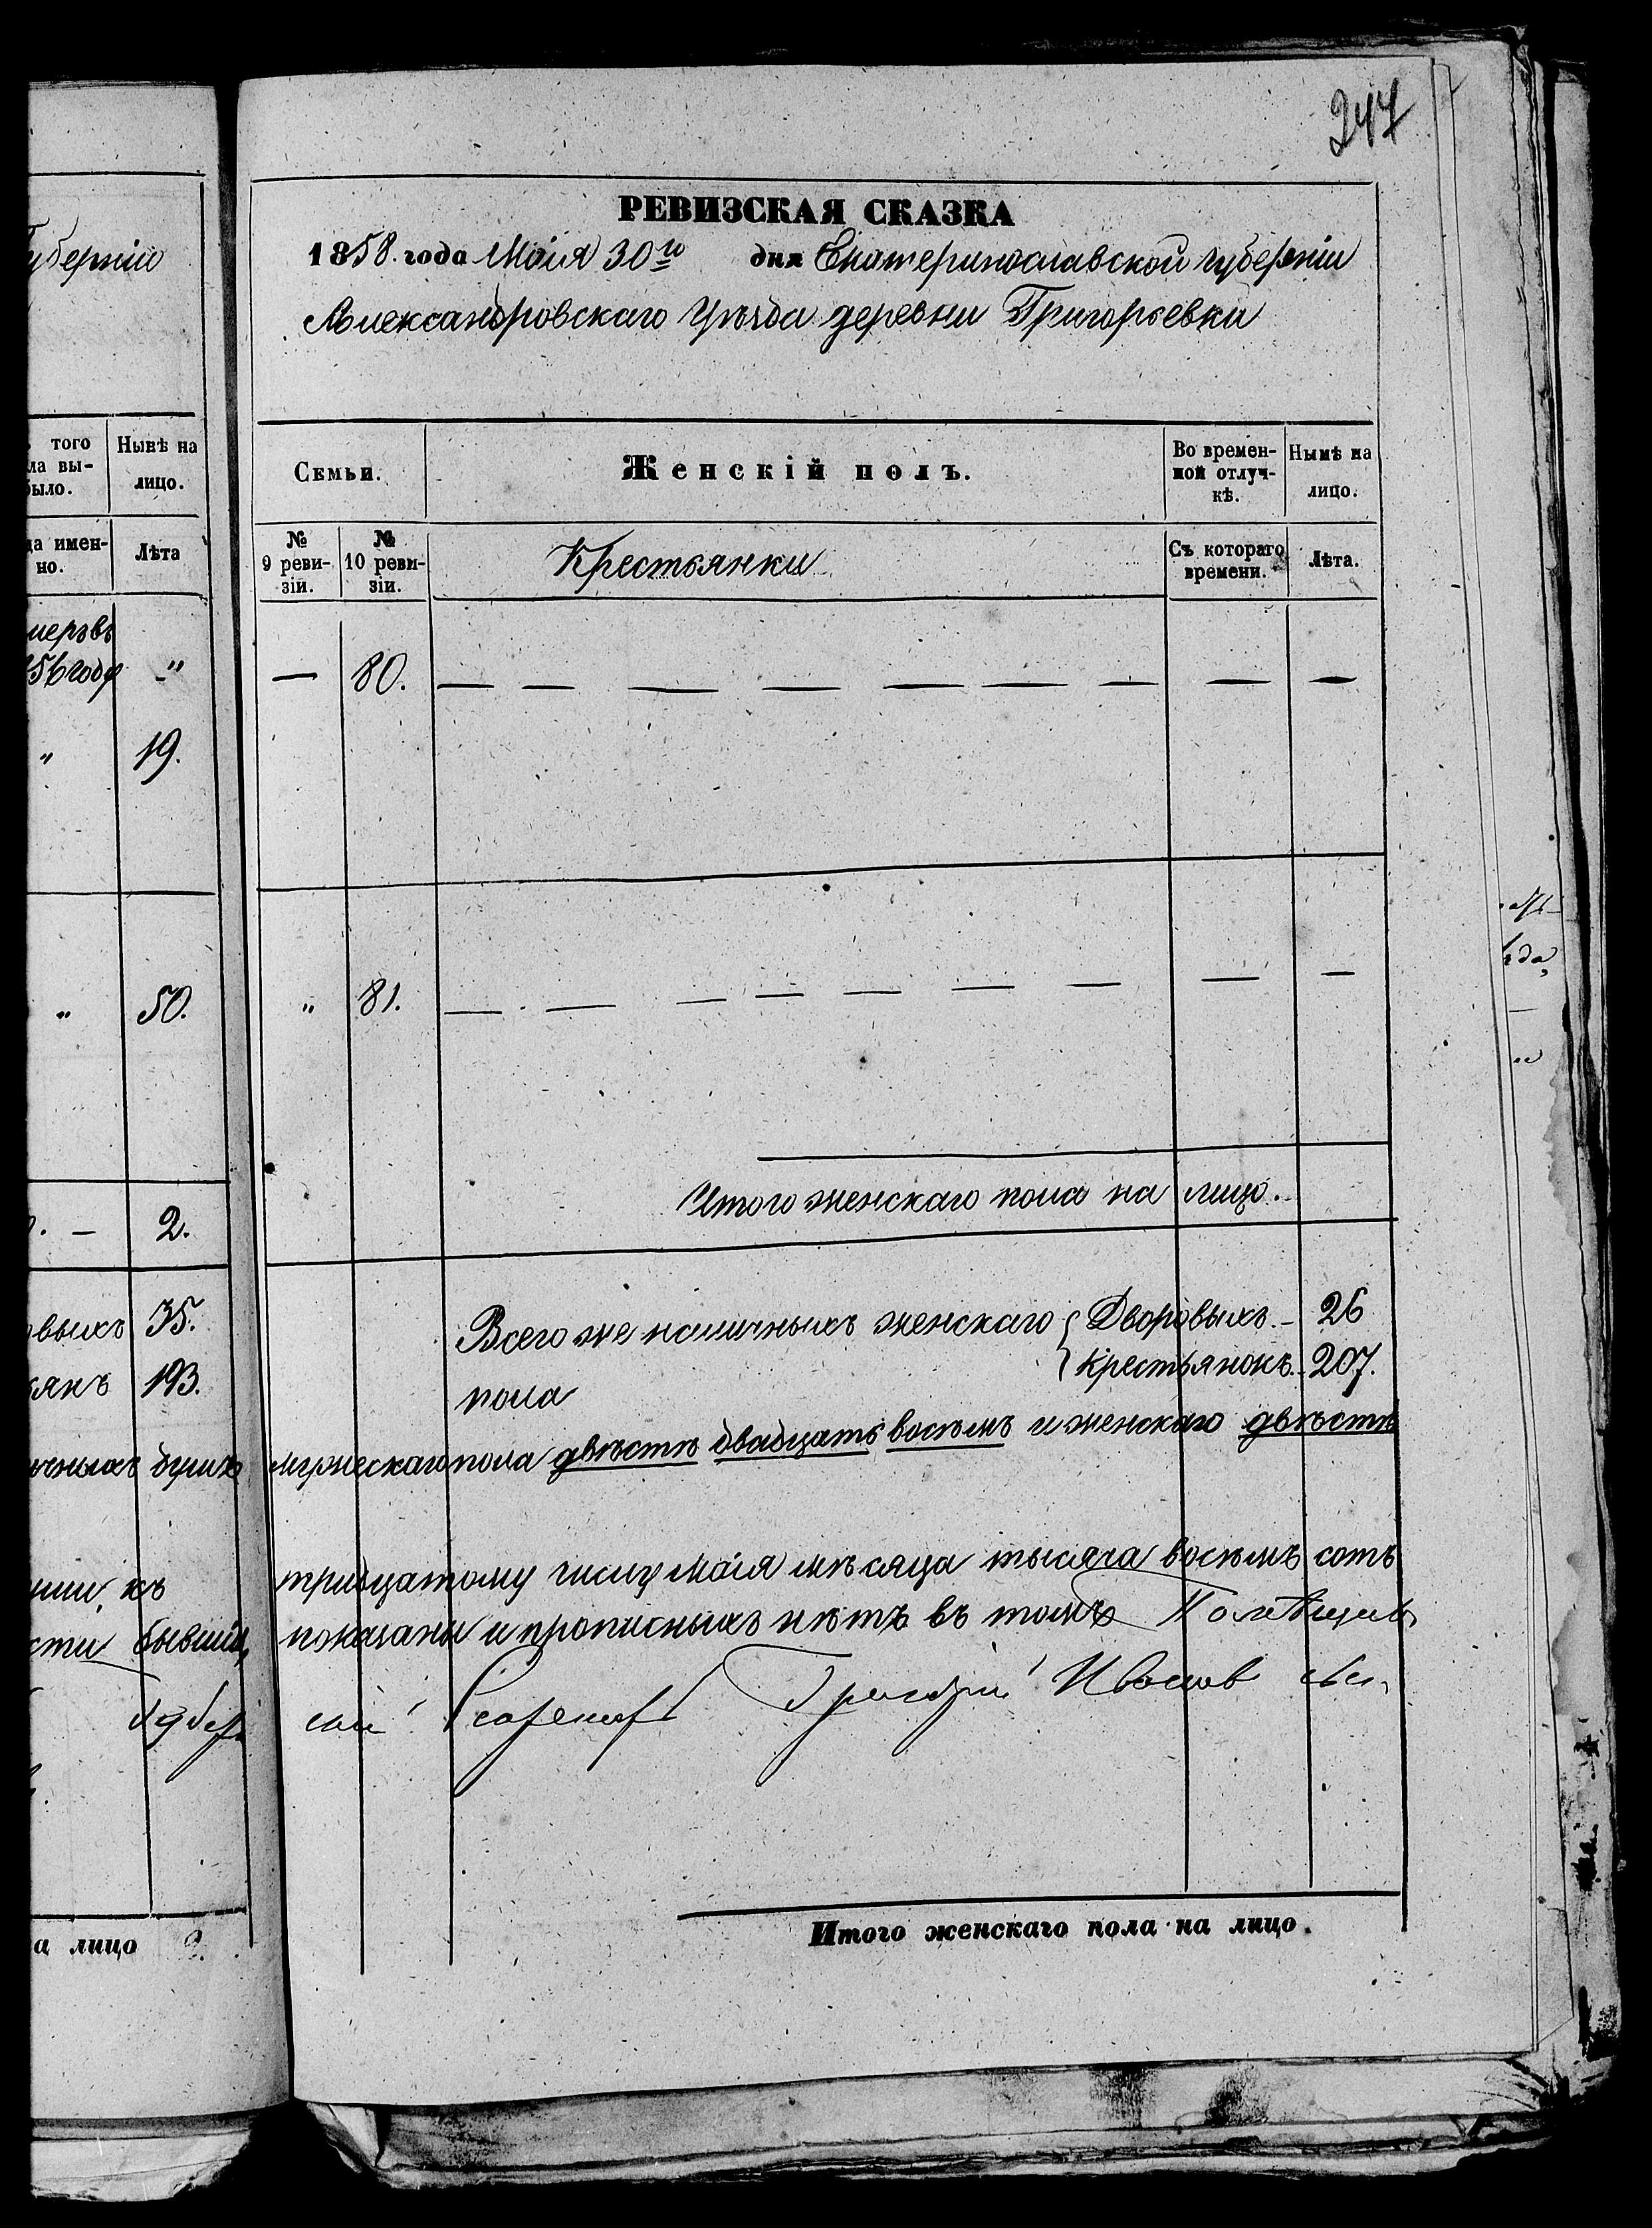 247
уберніи
РЕВИЗСКАЯ СКАЗКА
1858. года Маія 30го дня Екатеринославской губерніи
Александровскаго Уѣзда деревни Григорьевки
того
ла вы-
было.
Нынѣ на
лицо.
да имен-
но.
Лѣта
Семьи.
Женскій полъ.
Во времен-
ной отлуч-
кѣ.
Нынѣ на
лицо.
№
9 реви-
зіи.
№
10 реви-
зіи.
Крестьянки
Съ котораго
времени.
Лѣта.
меръ въ
56 году "
— 80. — — — — — — — — —
" 19.
" 50.
" 81. — — — — — — — — —
— 2.
Итого женскаго пола на лицо.
овыхъ 35.
янъ 193.
Всего же наличныхъ женскаго { Дворовыхъ. – 26
пола { Крестьянокъ. – 207.
ичныхъ душъ мужескаго пола двѣсти двадцать восемь и женскаго двѣсти
къ тридцатому числу маія мѣсяца тысяча восемь сотъ
сти бывшія, показаны и прописныхъ нѣтъ въ томъ
Иванов
Итого женскаго пола на лицо.
а лицо 2.